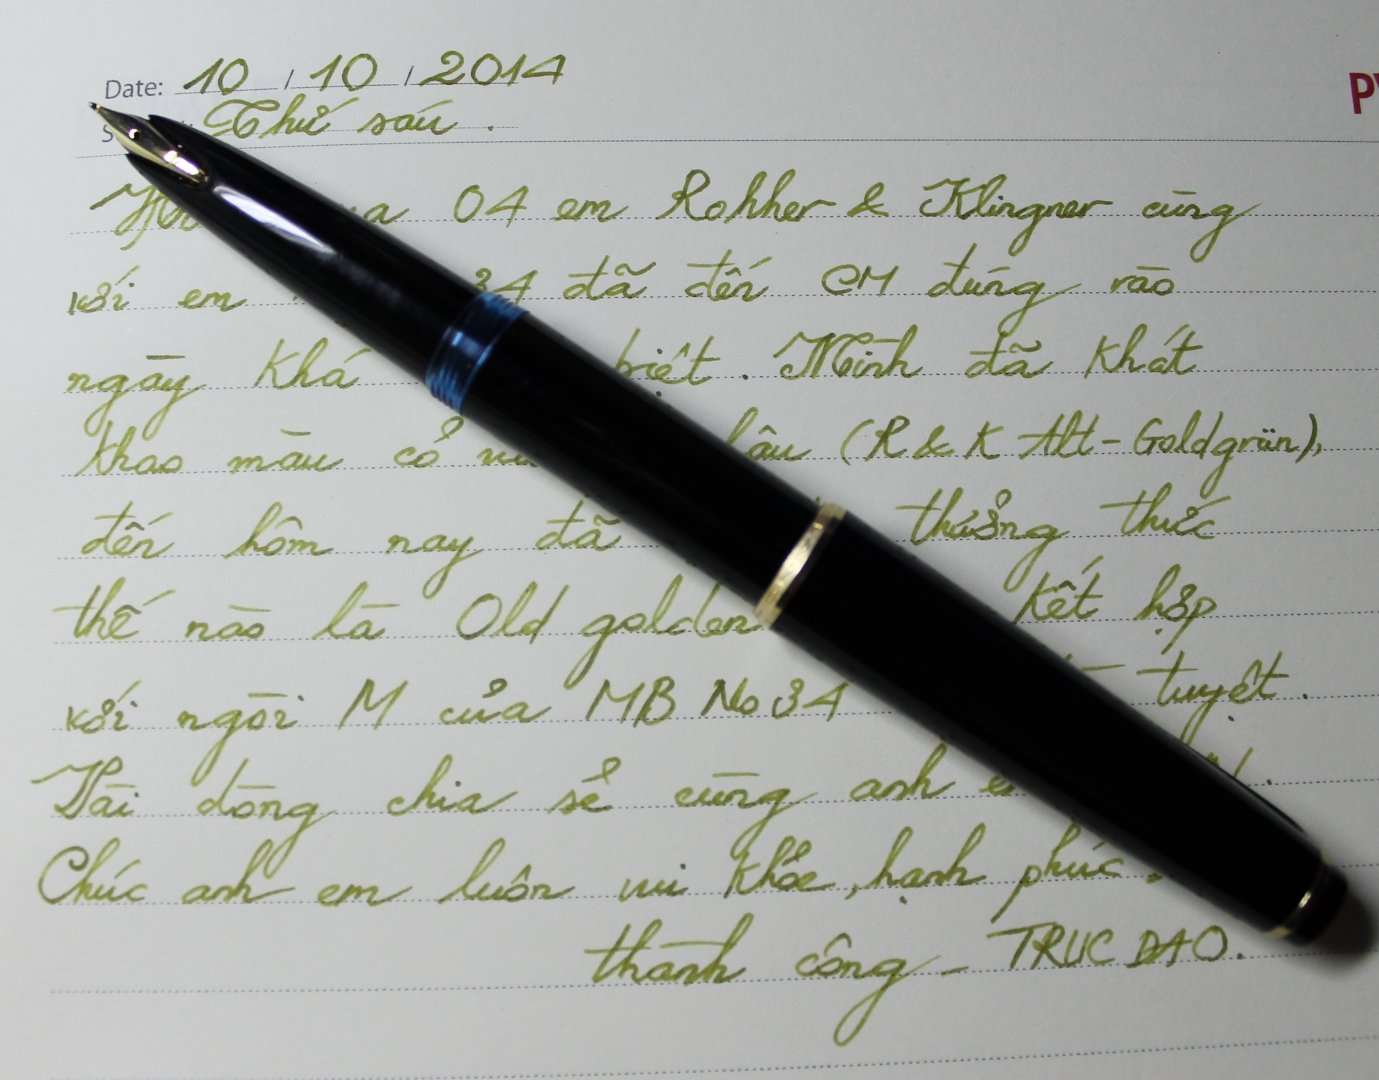 Date: 10 / 10 / 2014
Thứ sáu .
04 em Rohher & Klingner cùng
với em 34 đã đến CM đúng vào
ngày khá biệt . Mình đã khát
khao màu cỏ (R & K Alt-Goldgrün),
đến hôm nay đã thưởng thức
thế nào là Old golden kết hợp
với ngòi M của MB No 34 tuyệt .
Vài dòng chia sẻ cùng anh
Chúc anh em luôn vui khỏe, hạnh phúc .
thành công - TRUC DAO.